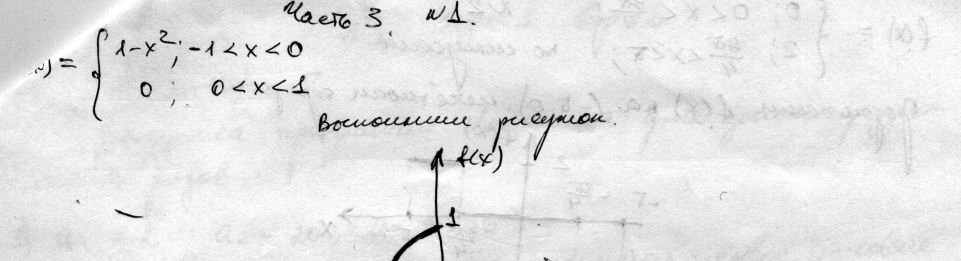 Часть 3. №1.
x) = { 1-x²; -1<x<0
0; 0<x<1
Выполним рисунок.
f(x)
1